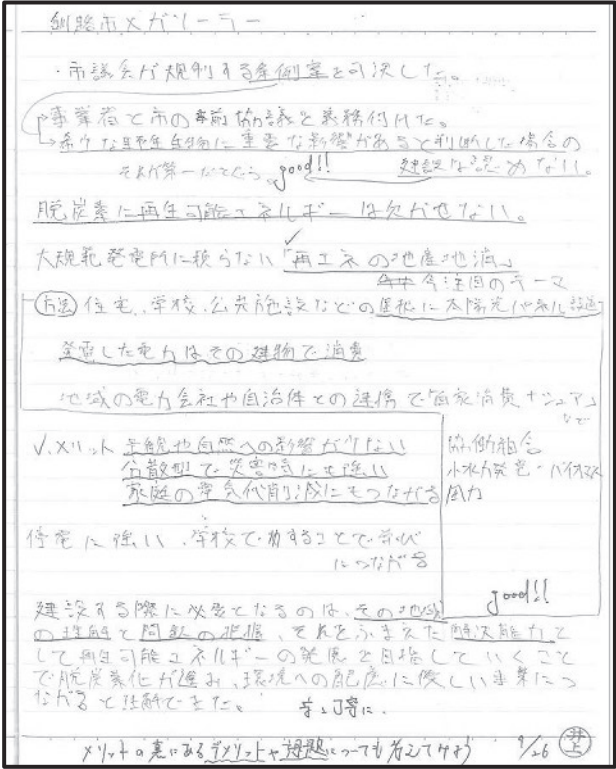 釧路市メガソーラー
・市議会が規制する条例案を可決した。
事業者と市の事前協議を義務付けた。
希少な野生生物に重要な影響があると判断した場合の
建設は認めない。
それが第一だと good!!
脱炭素に再生可能エネルギーは欠かせない。
大規模発電所に頼らない「再エネの地産地消」
今注目のテーマ
方法 住宅、学校、公共施設などの屋根に太陽光パネル設置
発電した電力はその建物で消費
地域の電力会社や自治体との連携で自家消費
など
協働組合
小水力発電・バイオマス
風力
√.メリット 景観や自然への影響が少ない
分散型で災害時にも強い
家庭の電気代削減にもつながる
停電に強い、学校で することで学び
につながる
good!!
建設する際に必要となるのは、その地域
の理解と問題の把握、それをふまえた解決能力と
して再生可能エネルギーの発展を目指していくこと
で脱炭素化が進み、環境への配慮に優しい事業につ
ながると理解できた。
字は丁寧に。
メリットの裏にあるデメリットや課題についても考えてみよう 9/26 井上